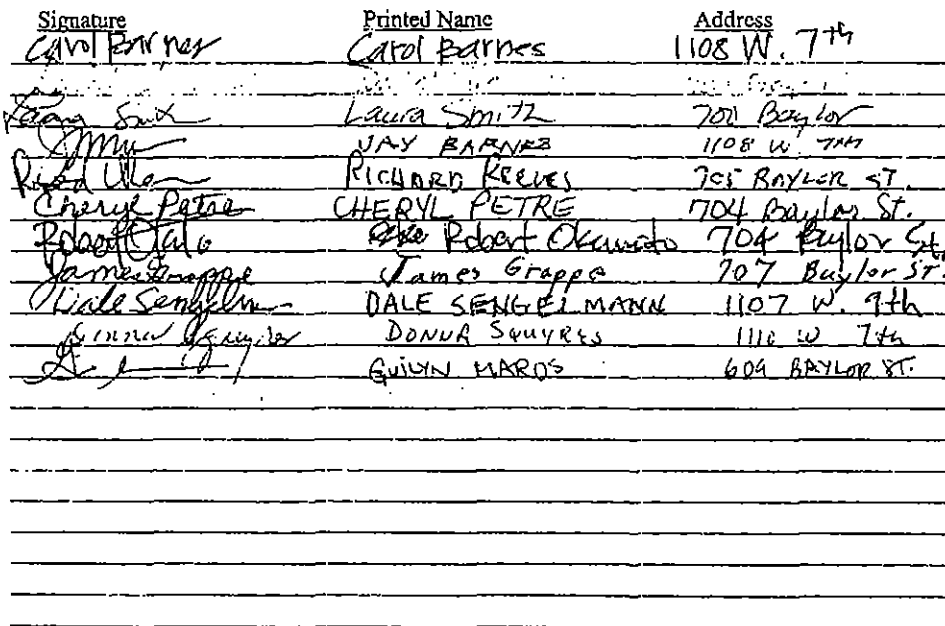 Signature Printed Name Address
Carol Barnes Carol Barnes 1108 W. 7th
Laura Smith 701 Baylor
JAY BARNES 1108 W. 7TH
RICHARD REEVES 705 BAYLOR ST.
Cheryl Petre CHERYL PETRE 704 Baylor St.
Robert Robert Okumoto 704 Baylor St.
James Grappe James Grappe 707 Baylor St.
Dale Sengelm DALE SENGELMANN 1107 W. 9th
DONNA SQUYRES 1110 W 7th
609 BAYLOR ST.